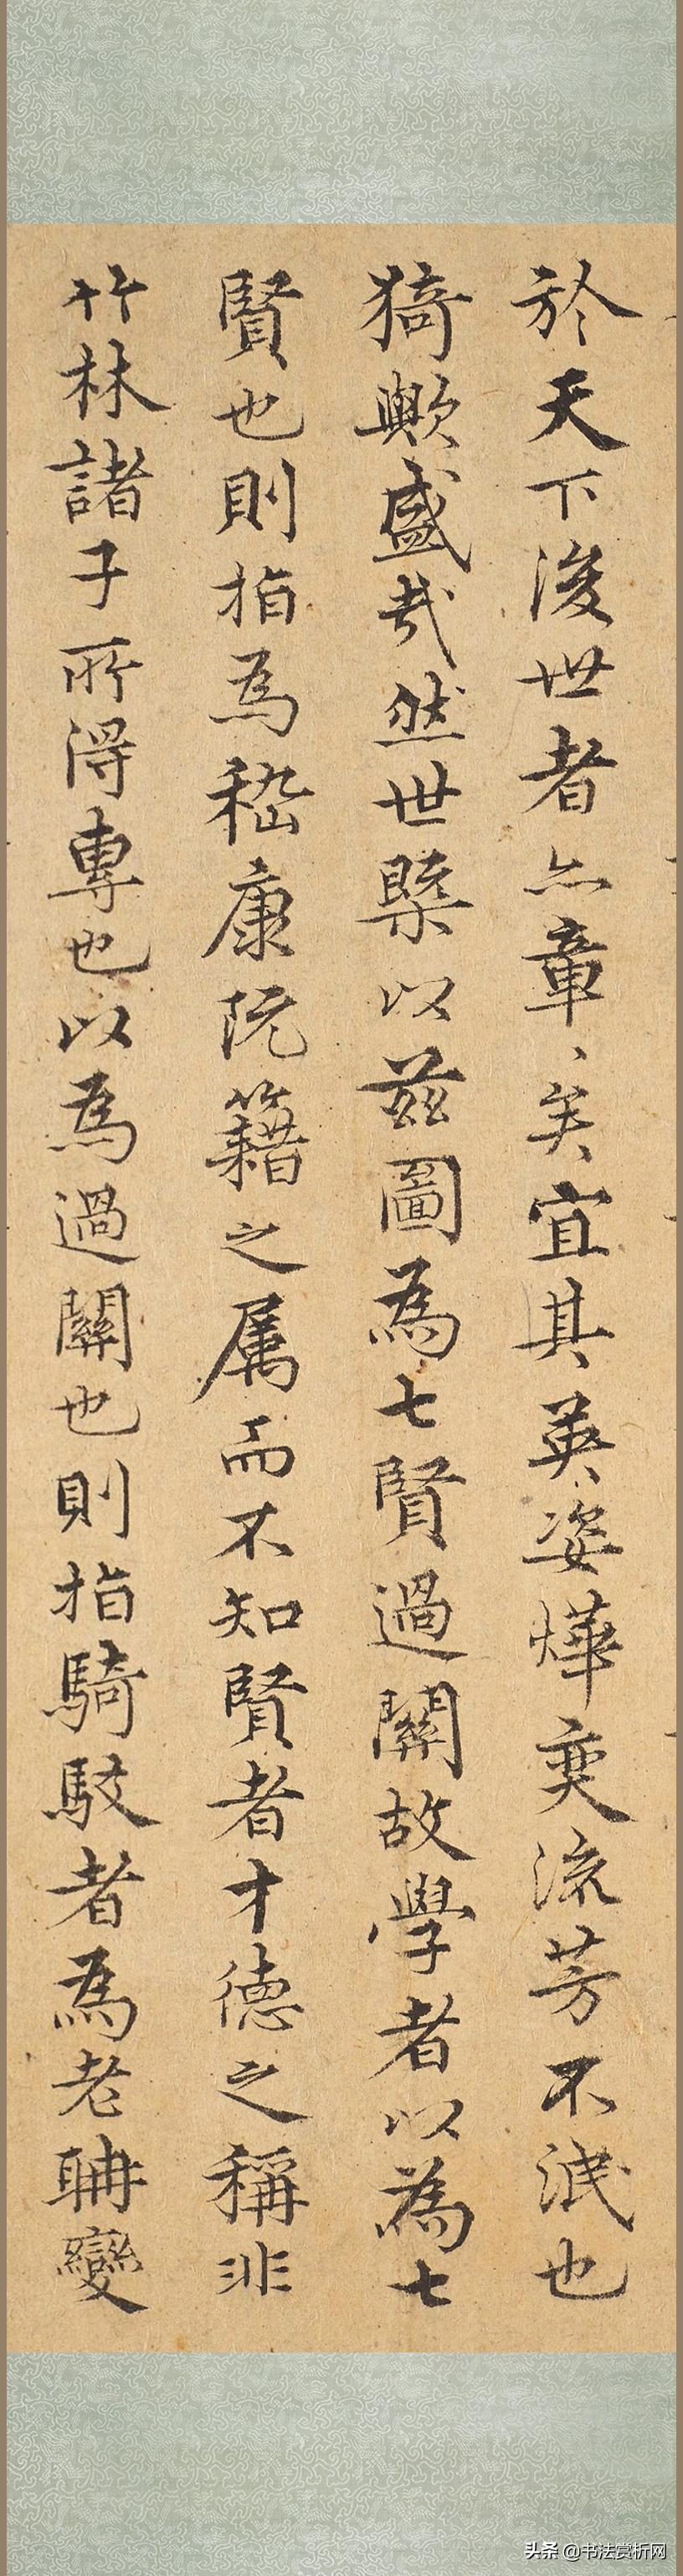 於天下後世者亦章〻矣宜其英姿燁奕流芳不泯也
猗歟盛哉然世槩以茲圖為七賢過關故學者以為七
賢也則指為嵇康阮籍之属而不知賢者才徳之稱非
竹林諸子所得專也以為過關也則指騎駁者為老聃變
头条 @书法赏析网